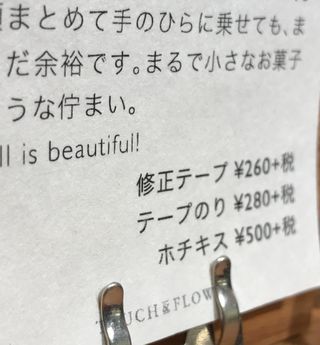 まとめて手のひらに乗せても、ま
だ余裕です。まるで小さなお菓子
うな佇まい。
ll is beautiful!
修正テープ ¥260+税
テープのり ¥280+税
ホチキス ¥500+税
UCH&FLOW